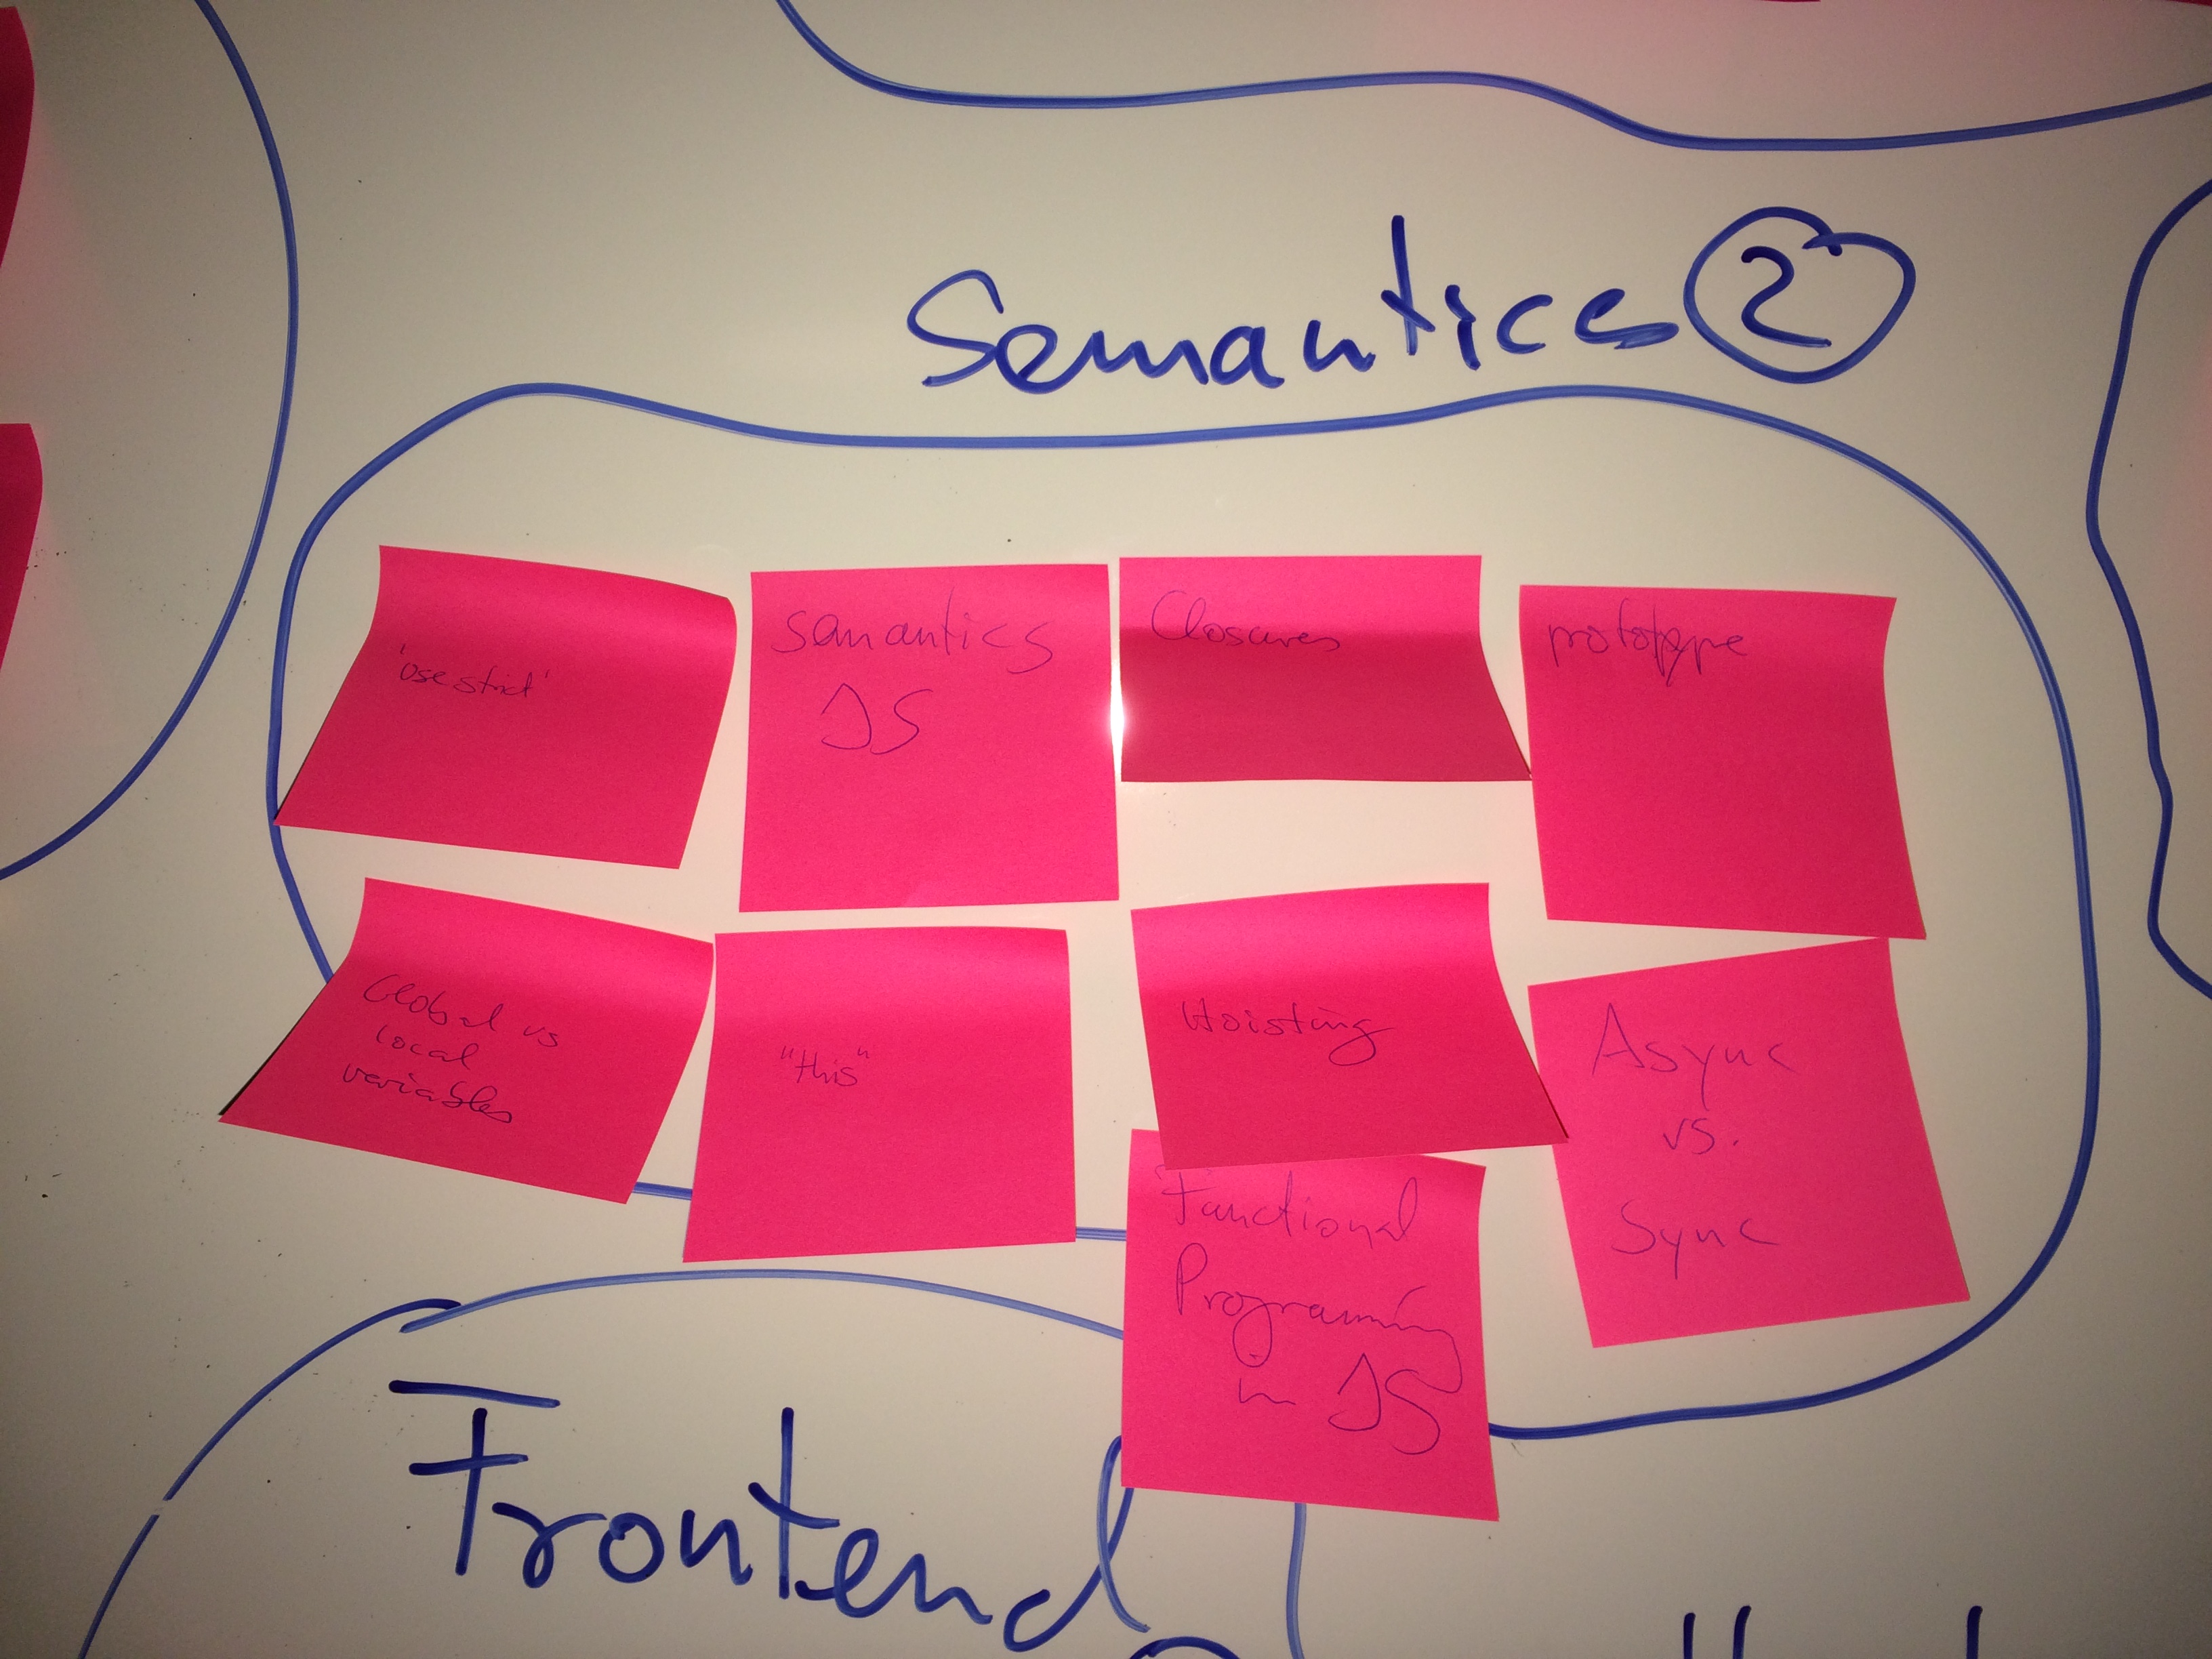 Semantics 2
'use strict'
Semantics
JS
Closures
prototype
Global vs
local
variables
"this"
Hoisting
Async
vs.
Sync
Functional
Programming
in JS
Frontend